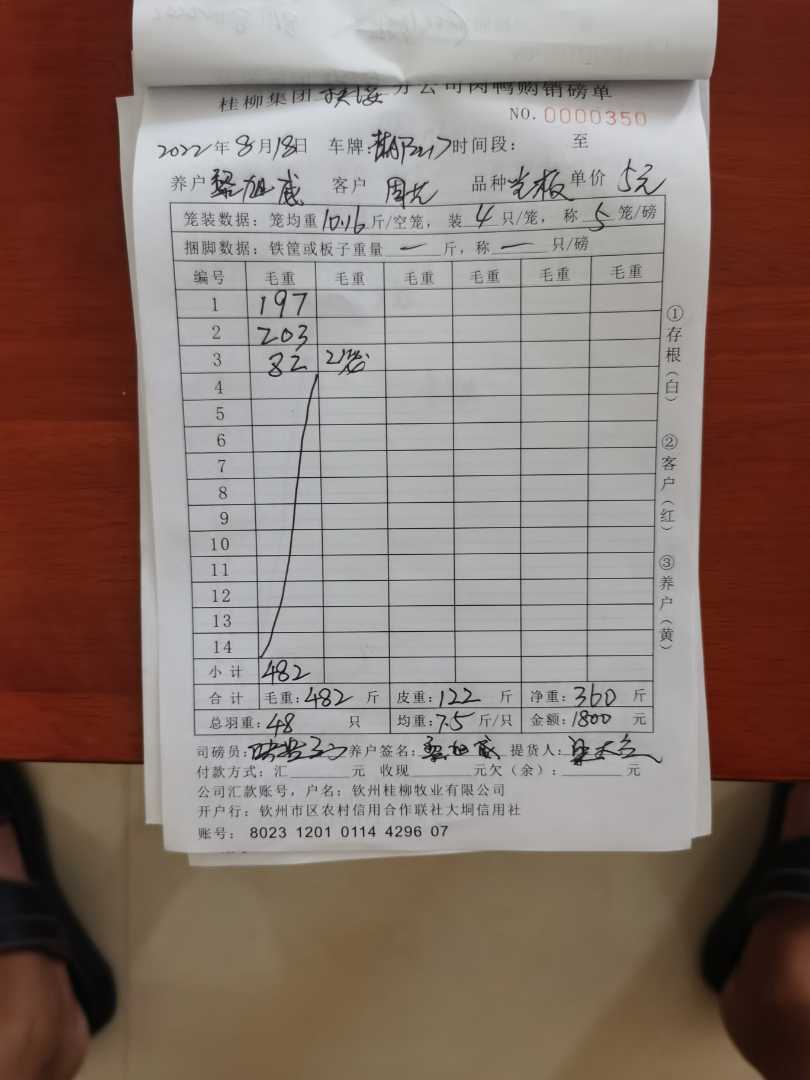 桂柳集团 分公司肉鸭购销磅单
NO. 0000350
2022年8月18日 车牌: 时间段: 至
养户 黎旭威 客户 周 品种 光板 单价 5元
笼装数据: 笼均重10.16斤/空笼, 装4只/笼, 称5笼/磅
捆脚数据: 铁筐或板子重量 一 斤, 称 一 只/磅
编号 毛重 毛重 毛重 毛重 毛重 毛重
1 197
2 203
3 82 2笼
4
5
6
7
8
9
10
11
12
13
14
小计 482
合计 毛重: 482 斤 皮重: 122 斤 净重: 360 斤
总羽重: 48 只 均重: 7.5 斤/只 金额: 1800 元
司磅员: 养户签名: 黎旭威 提货人:
付款方式: 汇 元 收现 元欠(余): 元
公司汇款账号, 户名: 钦州桂柳牧业有限公司
开户行: 钦州市区农村信用合作联社大垌信用社
账号: 8023 1201 0114 4296 07
①存根(白) ②客户(红) ③养户(黄)